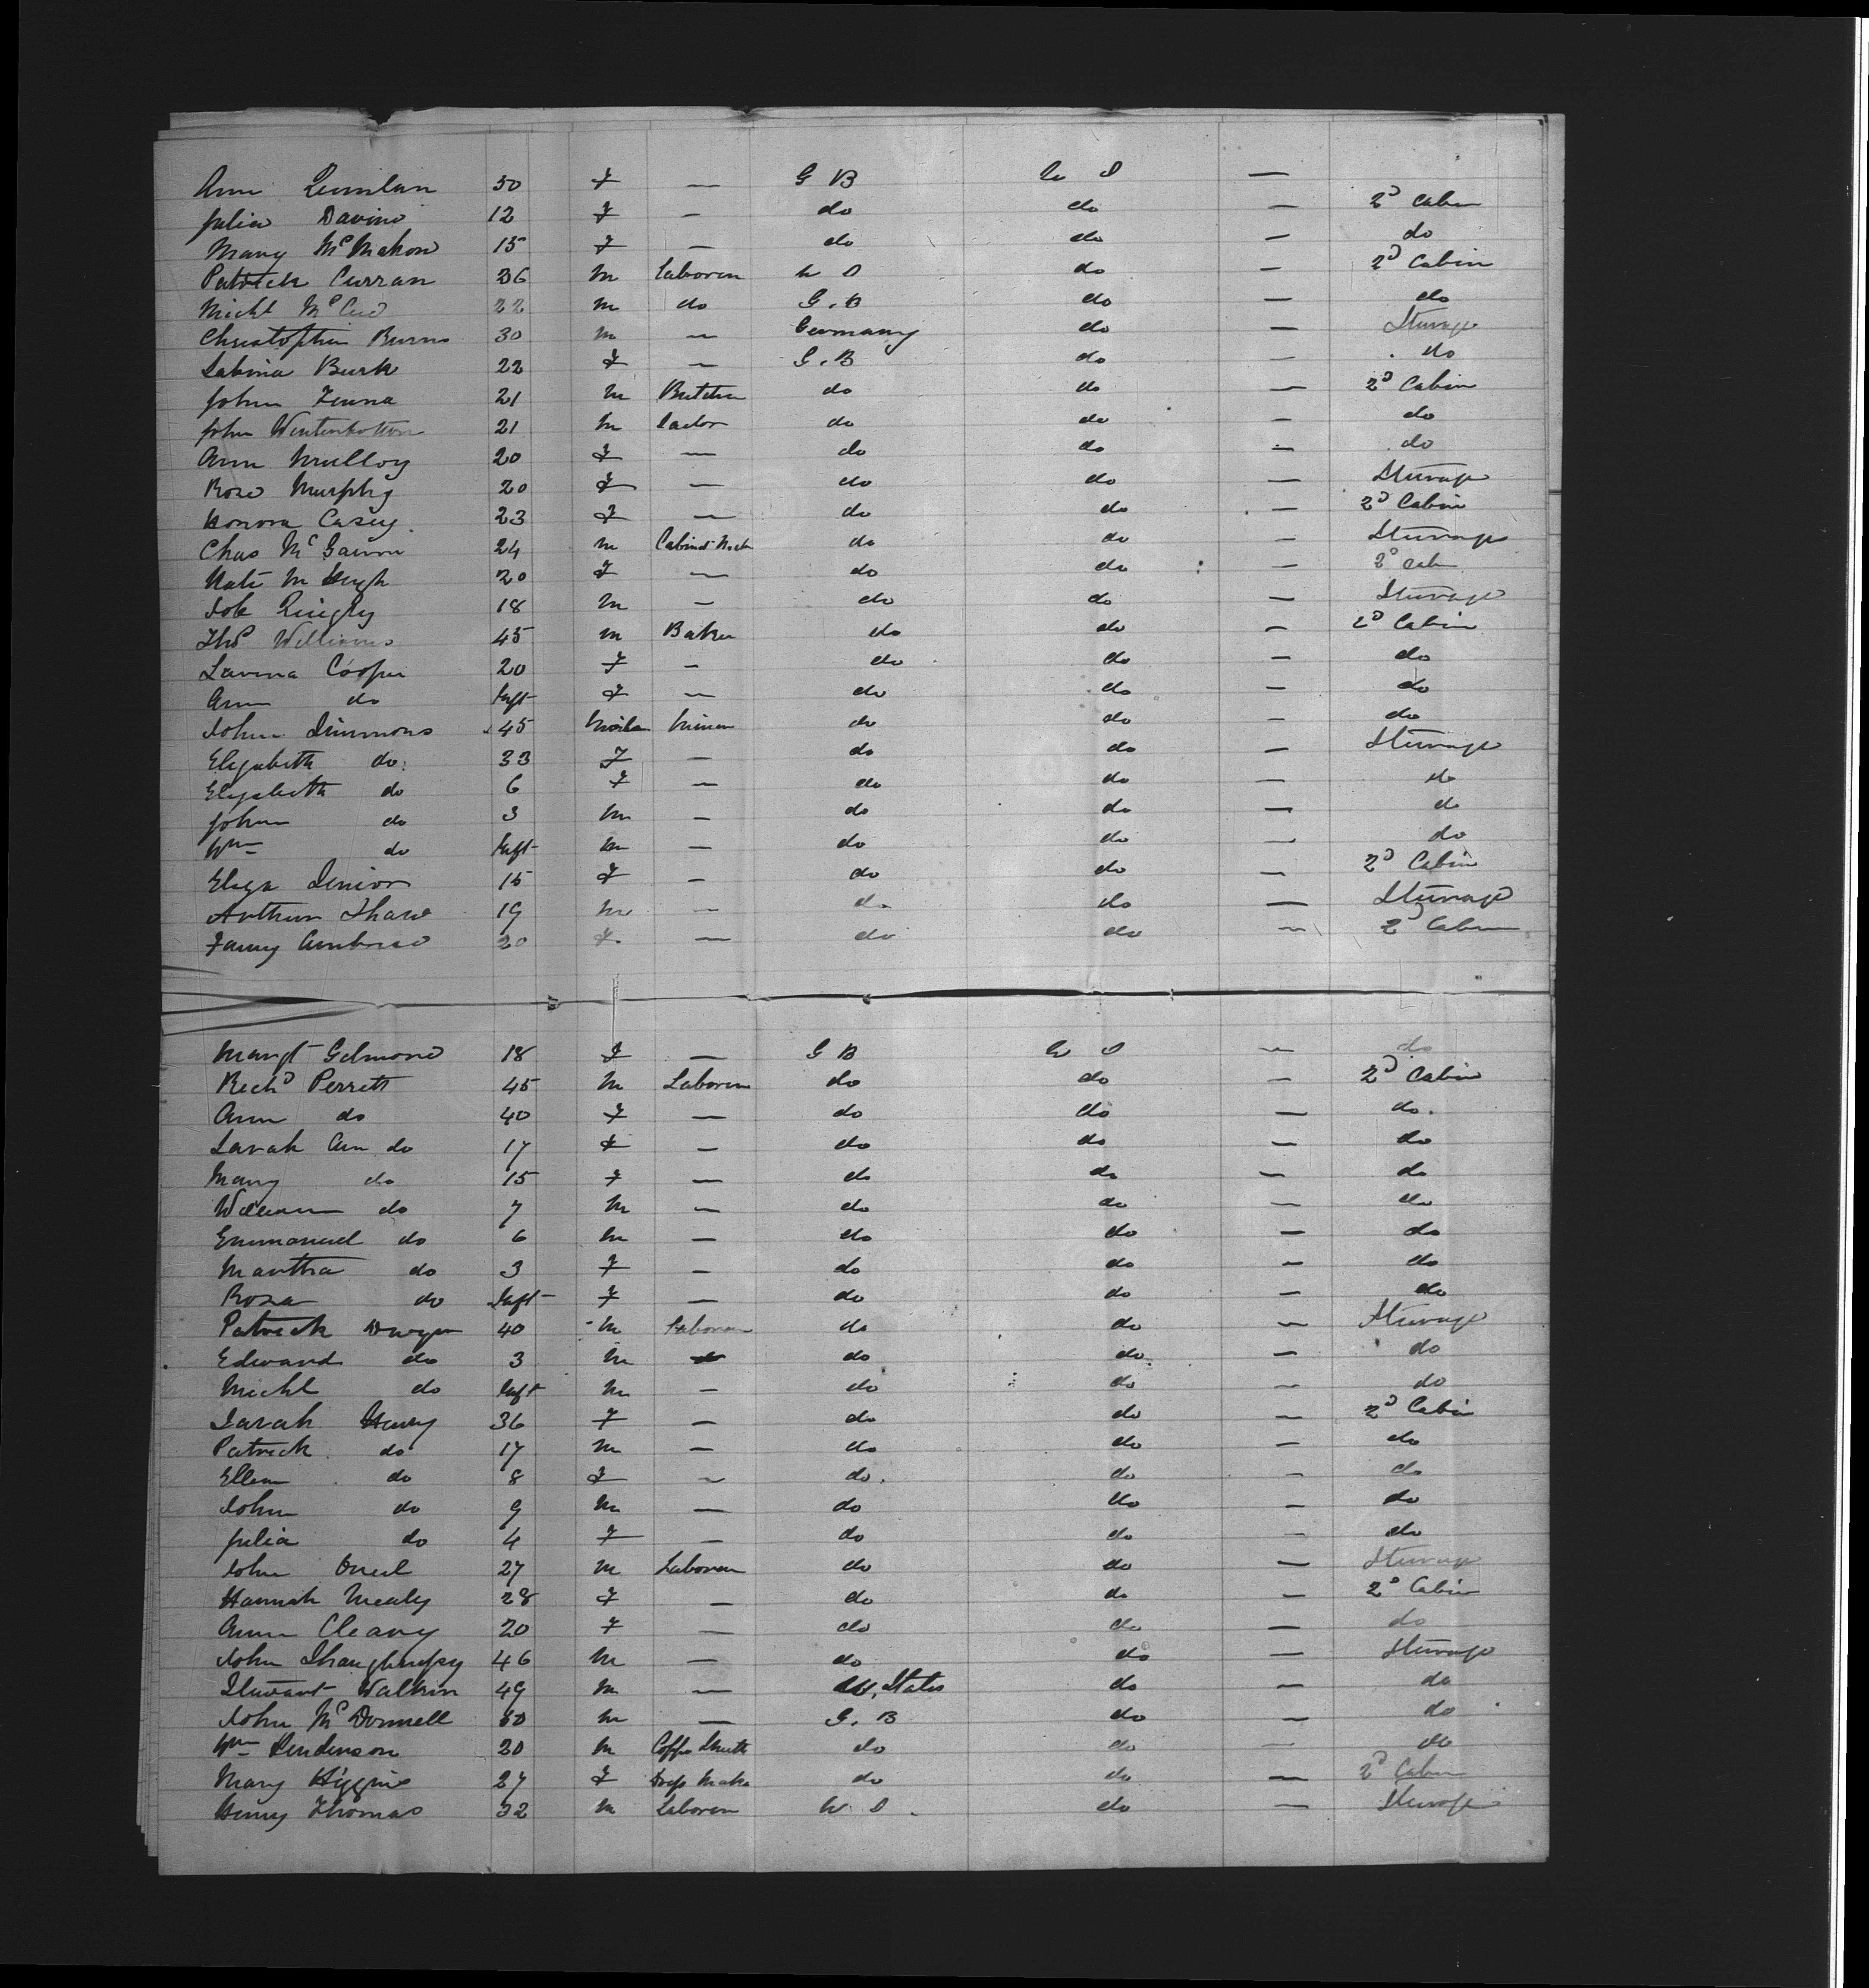 Ann Quinlan 50 F — G B U S —
Julia Davine 12 F — do do — 2D Cabin
Mary McMahon 15 F — do do — do
Patrick Curran 36 M Laborer U S do — 2D Cabin
Michl McCue 22 M do G. B do — do
Christopher Burns 30 M — Germany do — Steerage
Sabina Burk 22 F — G. B do — do
John Fenna 21 M Butcher do do — 2D Cabin
John Winterbottom 21 M do do — do
Ann Mulloy 20 F — do do — do
Rose Murphy 20 F — do do — Steerage
Honora Casey 23 F — do do — 2D Cabin
Chas McGann 24 M Cabinet do do — Steerage
Kate McHugh 20 F — do do — 2D Cabin
Job 18 M — do do — Steerage
Thos Williams 45 M Baker do do — 2D Cabin
Lavina Cooper 20 F — do do — do
Ann do Inft F — do do — do
John Simmons 45 Miner do do — do
Elizabeth do 33 F — do do — Steerage
Elizabeth do 6 F — do do — do
John do 3 M — do do — do
Wm do Inft M — do do — do
Eliza Senior 15 F — do do — 2D Cabin
Arthur Shaw 19 M — do do — Steerage
Fanny Ambrose 20 F. — do do — 2D Cabin
Margt Gilmore 18 F — G B U S — do
Richd Perrett 45 M Laborer do do — 2D Cabin
Ann do 40 F — do do — do.
Sarah Ann do 17 F — do do — do
Mary do 15 F — do do — do
William do 7 M — do do — do
Emmanuel do 6 M — do do — do
Martha do 3 F — do do — do
Rosa do Inft F — do do — do
Patrick Dwyer 40 M Laborer do do — Steerage
Edward do 3 M do do do — do
Michl do Inft M — do do — do
Sarah Henry 36 F — do do — 2D Cabin
Patrick do 17 M — do do — do
Ellen do 8 F — do. do — do
John do 9 M — do do — do
Julia do 4 F — do do — do
John Oneil 27 M Laborer do do — Steerage
Hannah Mealy 28 F — do do — 2D Cabin
Ann Cleary 20 F — do do — do
John Shaughnessy 46 M — do do — Steerage
Stewart Walker 49 M — U. States do — do
John McDonnell 50 M — G. B do — do
Wm Henderson 20 M Copper Smith do do — do
Mary Higgins 27 F Dress Maker do do — 2D Cabin
Henry Thomas 32 M Laborer U S. do — Steerage